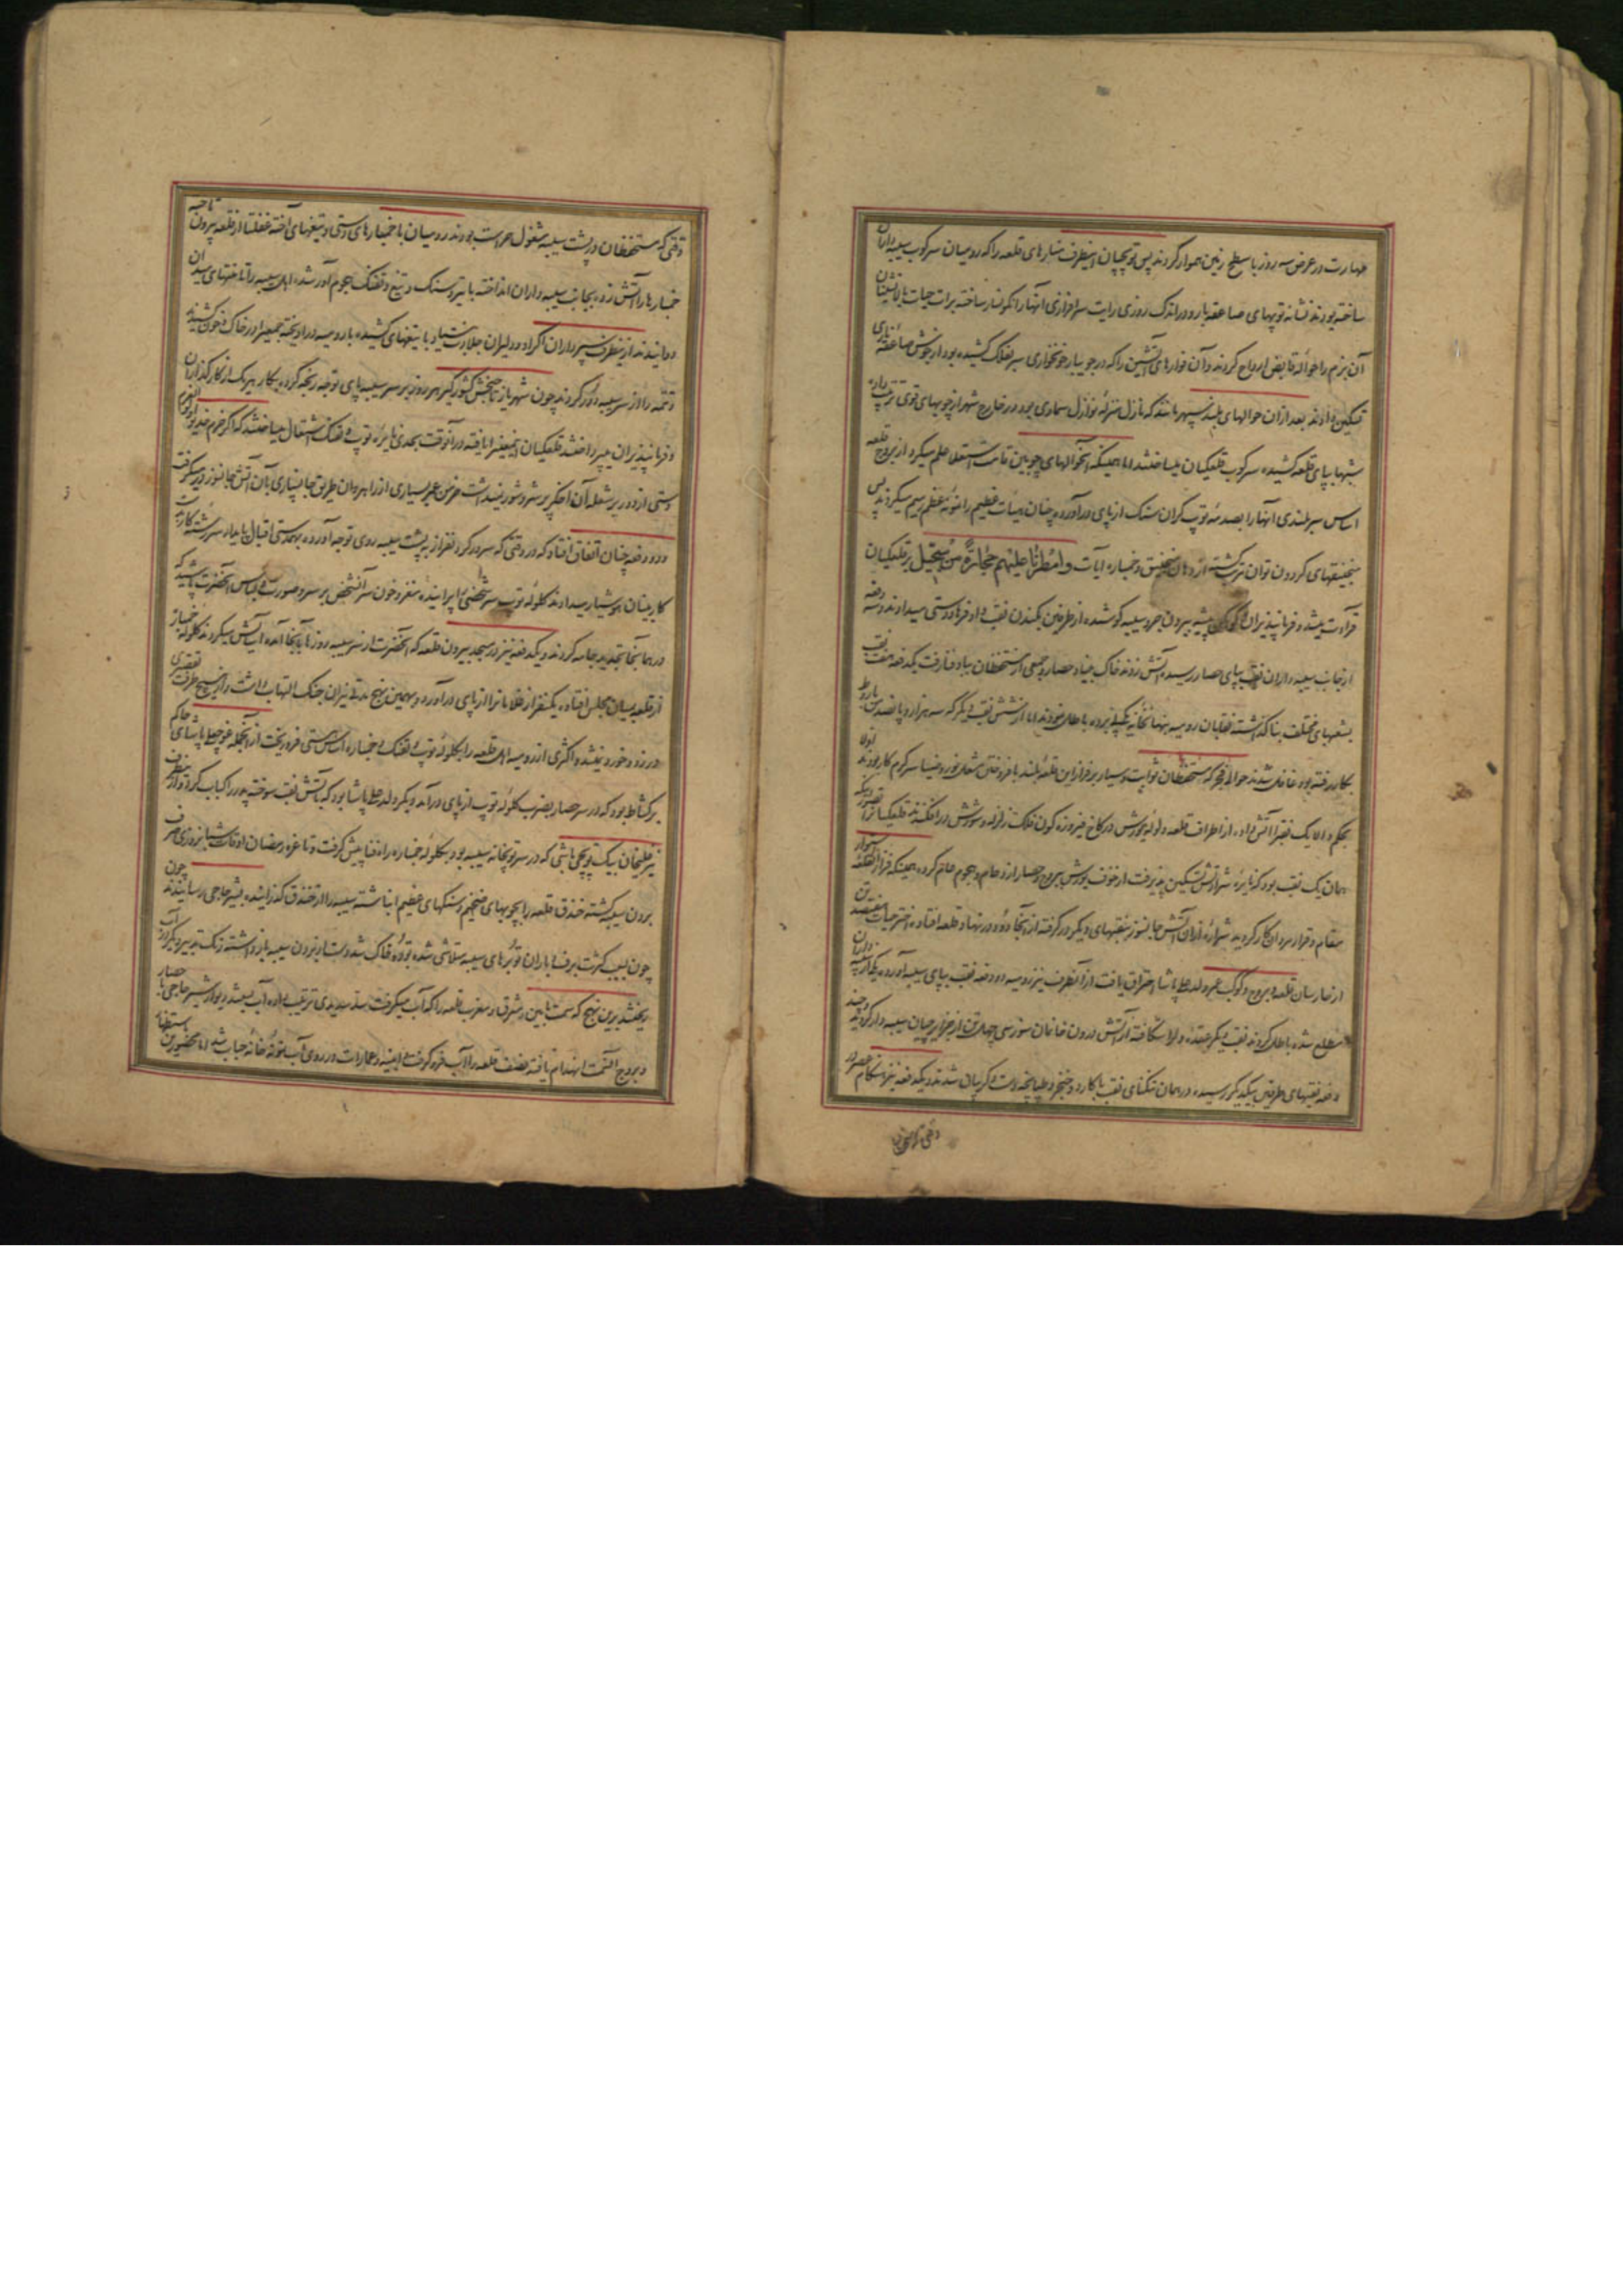 مهارت در عرض سه روز با سطح زمین هموار کردند پس توپچیان اینطرف منارهای قلعه را که رومیان سرکوب سیبه داران
ساخته بودند نشانه توپهای صاعقه بار و در اندک روزی رایت سرافرازی آنها را نگونسار ساخته برات حیات بالانشینان
آن بزم را حواله قابض ارواح کردند و آن فوارهای آتشین را که در جویبار خونخواری سر بفلک کشیده بود از جوش صاعقه زای
تسکین دادند بعد از آن حوالهای بلند سپهر مانند که نازل منزله نوازل سماوی بود در خارج شهر از چوبهای قوی ترتیب داده
شبها بپای قلعه کشیده سرکوب قلعکیان میساختند اما همینکه آنحوالهای چوبین قامت استعلا علم میکرد از بروج قلعه
اساس سربلندی آنها را بصدمه توپ گران سنک از پای درآورده چنان هیئات عظیم را نمونه عظم رمیم میکردند پس
منجنیقهای کردون توان ترتیب گشته از دهان منجنیق و خمپاره آیات وامطرنا علیهم حجارة من سجیل بر قلعکیان
قرائت میشد و فرمانپذیران پیشه بیرون جر و سیبه کوشیده از طرفین بکندن نقب داد فرهاددستی میدادند دو سه دفعه
از جانب سیبه داران نقب بپای حصار رسیده آتش زدند خاک بنیاد حصار و جمعی از مستحفظان بباد فنا رفت یکدفعه هفت نقب
بشعبهای مختلف بنا گذاشته نقابان رومیه بنهانخانه یک پی برده باطل نمودند اما از شش نقب دیگر که سه هزار و پانصد من باروط
بکار رفته بود غافل شدند حوالی فجر که مستحفظان ثوابت و سیار بر فراز این قلعه بلند بافروختن مشعل نور و ضیا سرگرم کار بودند
بحکم والا یک نقب را آتش داده از اطراف قلعه ولوله یورش در کاخ فیروزه گون فلک زلزله و شورش درافکند قلعکیان را تصور اینکه
همان یک نقب بود که نایره شرارتش تسکین پذیرفت از خوف یورش ببروج و حصار ازدحام و هجوم عام کرده همینکه فراز قلعه
مقام و قرار مردان کار گردید شراره از آن آتش جانسوز بنقبهای دیگر درگرفته از آنجا دود در نهاد قلعه افتاده اختر حیات هفتصد تن
از حارسان قلعه و بروج و کوکب عمر ولد علی پاشا احتراق یافت از آنطرف نیز رومیه دو دفعه نقب بپای سیبه آورده یکی را سیبه داران
مطلع شده باطل کردند نقب دیگر کار کرده و لوا شکافته آتش درون خانمان سوز سی چهل تن از جزایرچیان سیبه دار کردند و چند
دفعه نقبهای طرفین بیکدیگر رسیده در همان تنگنای نقب با کارد و خنجر و طپانچه دست و گریبان شدند و یکدفعه نیز هنگام عصر در
وقتی که مستحفظان
وقتی که مستحفظان در پشت سیبه مشغول حراست بودند رومیان با خمپارهای دستی و تیغهای آخته غفلتا از قلعه بیرون تاخته
خمپارها را آتش زده بجانب سیبه داران انداخته با تیر و سنک و تیغ و تفنک هجوم آور شده اهل سیبه را تا منتهای میدان
دوانیدند از اینطرف شیرداران اکراد و دلیران جلادت بنیاد با تیغهای کشیده با رومیه درآویخته جمعی را در خاک و خون کشیدند
و تتمه را از سر سیبه دور کردند چون شهریار تاجبخش کشورگیر هر روز بر سر سیبه پای توجه رنجه کرده بکار هر یک از کارگذاران
و فرمانپذیران میپرداختند قلعکیان اینمعنی را یافته در آنوقت بحدی نایره توپ و تفنک اشتعال میساختند که اگر حزم خدیو اولوالعزم
دستی از دور بر شعله آن اخگر پر شر و شور نمیداشت خرمن عمر بسیاری از راهروان طریق جانسپاری بآن آتش جانسوز درمیگرفت
و دو دفعه چنان اتفاق افتاد که در وقتی که سرور گردنفراز به پشت سیبه روی توجه آورده بهمدستی اقبال پایدار سررشته کار بدست
کاربینان هوشیار میدادند گلوله توپ سر شخصی را پرانیده مغز و خون سر آنشخص بر سر و صورت و لباس آنحضرت پاشیده
در همانجا تجدید جامه کردند و یکدفعه نیز در مسجد بیرون قلعه که آنحضرت از سر سیبه روزها بآنجا آمده آسایش میکردند گلوله خمپاره
از قلعه بمیان مجلس افتاده یکنفر از غلامان را از پای درآورد و بهمین نهج مدتی نیران جنک التهاب داشت و از هیچ طرف تقصیری
در زد و خورد نمیشد و اکثری از رومیه اهل قلعه را بگلوله توپ و تفنک و خمپاره اساس هستی فروریخت از آنجمله قوجه علی پاشای حاکم
برکشاط بود که در سر حصار بضرب گلوله توپ از پای درآمد و دیگر ولد علی پاشا بود که بآتش نقب سوخته پدر را کباب کرد و از اینطرف
نیز علیخان بیک توپچی باشی که در سر توپخانه سیبه بود بگلوله خمپاره راه فنا پیش گرفت و تا غره رمضان اوقات شبانروزی صرف
بردن سیبه گشته خندق قلعه را بچوبهای ضخیم و سنگهای عظیم انباشته سیبه را از خندق گذرانیده بشیرحاجی رسانیدند چون
چون بسبب کثرت برف و باران توره های سیبه متلاشی شده توده خاک شد دست از بردن سیبه بازداشته رنک تدبیر دیگر در آب
ریختند برین نهج که سمت مابین مشرق و مغرب قلعه را که آب میگرفت سد سدیدی ترتیب داده آب بستند دیوار شیرحاجی با حصار
و بروج آنسمت انهدام یافته نصف قلعه را آب فروگرفت و ابنیه و عمارات در روی آب نمونه خانه حباب شد اما محصورین باستظهار